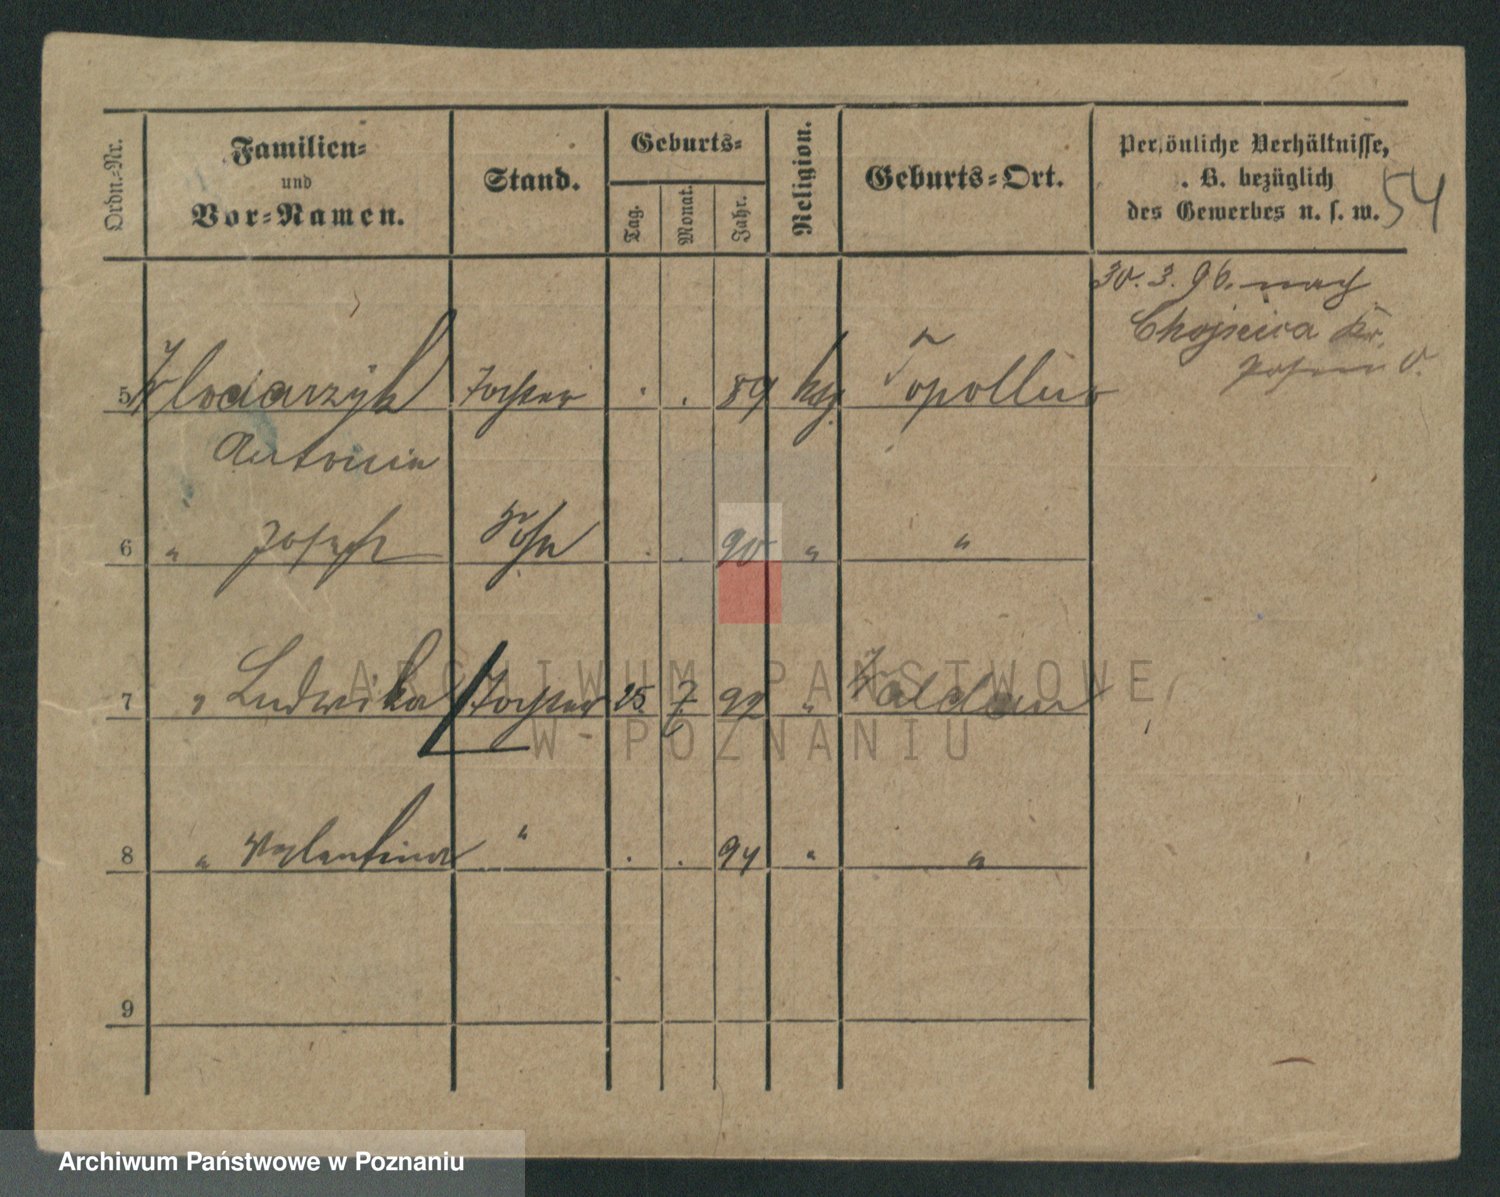 Ordn.-Nr.
Familien-
und
Vor-Namen.
Stand.
Geburts-
Tag.
Monat.
Jahr.
Religion.
Geburts-Ort.
Persönliche Verhältnisse,
. B. bezüglich
des Gewerbes u. s. w.
54
30.3.96. nach
Chojnica Kr.
Posen O.
5 Wlodarzyk Tochter . . 89 kath.
Antonie
6 " Joseph Sohn . . 90 " "
7 " Ludwika Tochter 25 7 92 " Waldau
8 " Valentina " . . 94 " "
9
ARCHIWUM PAŃSTWOWE
W POZNANIU
Archiwum Państwowe w Poznaniu